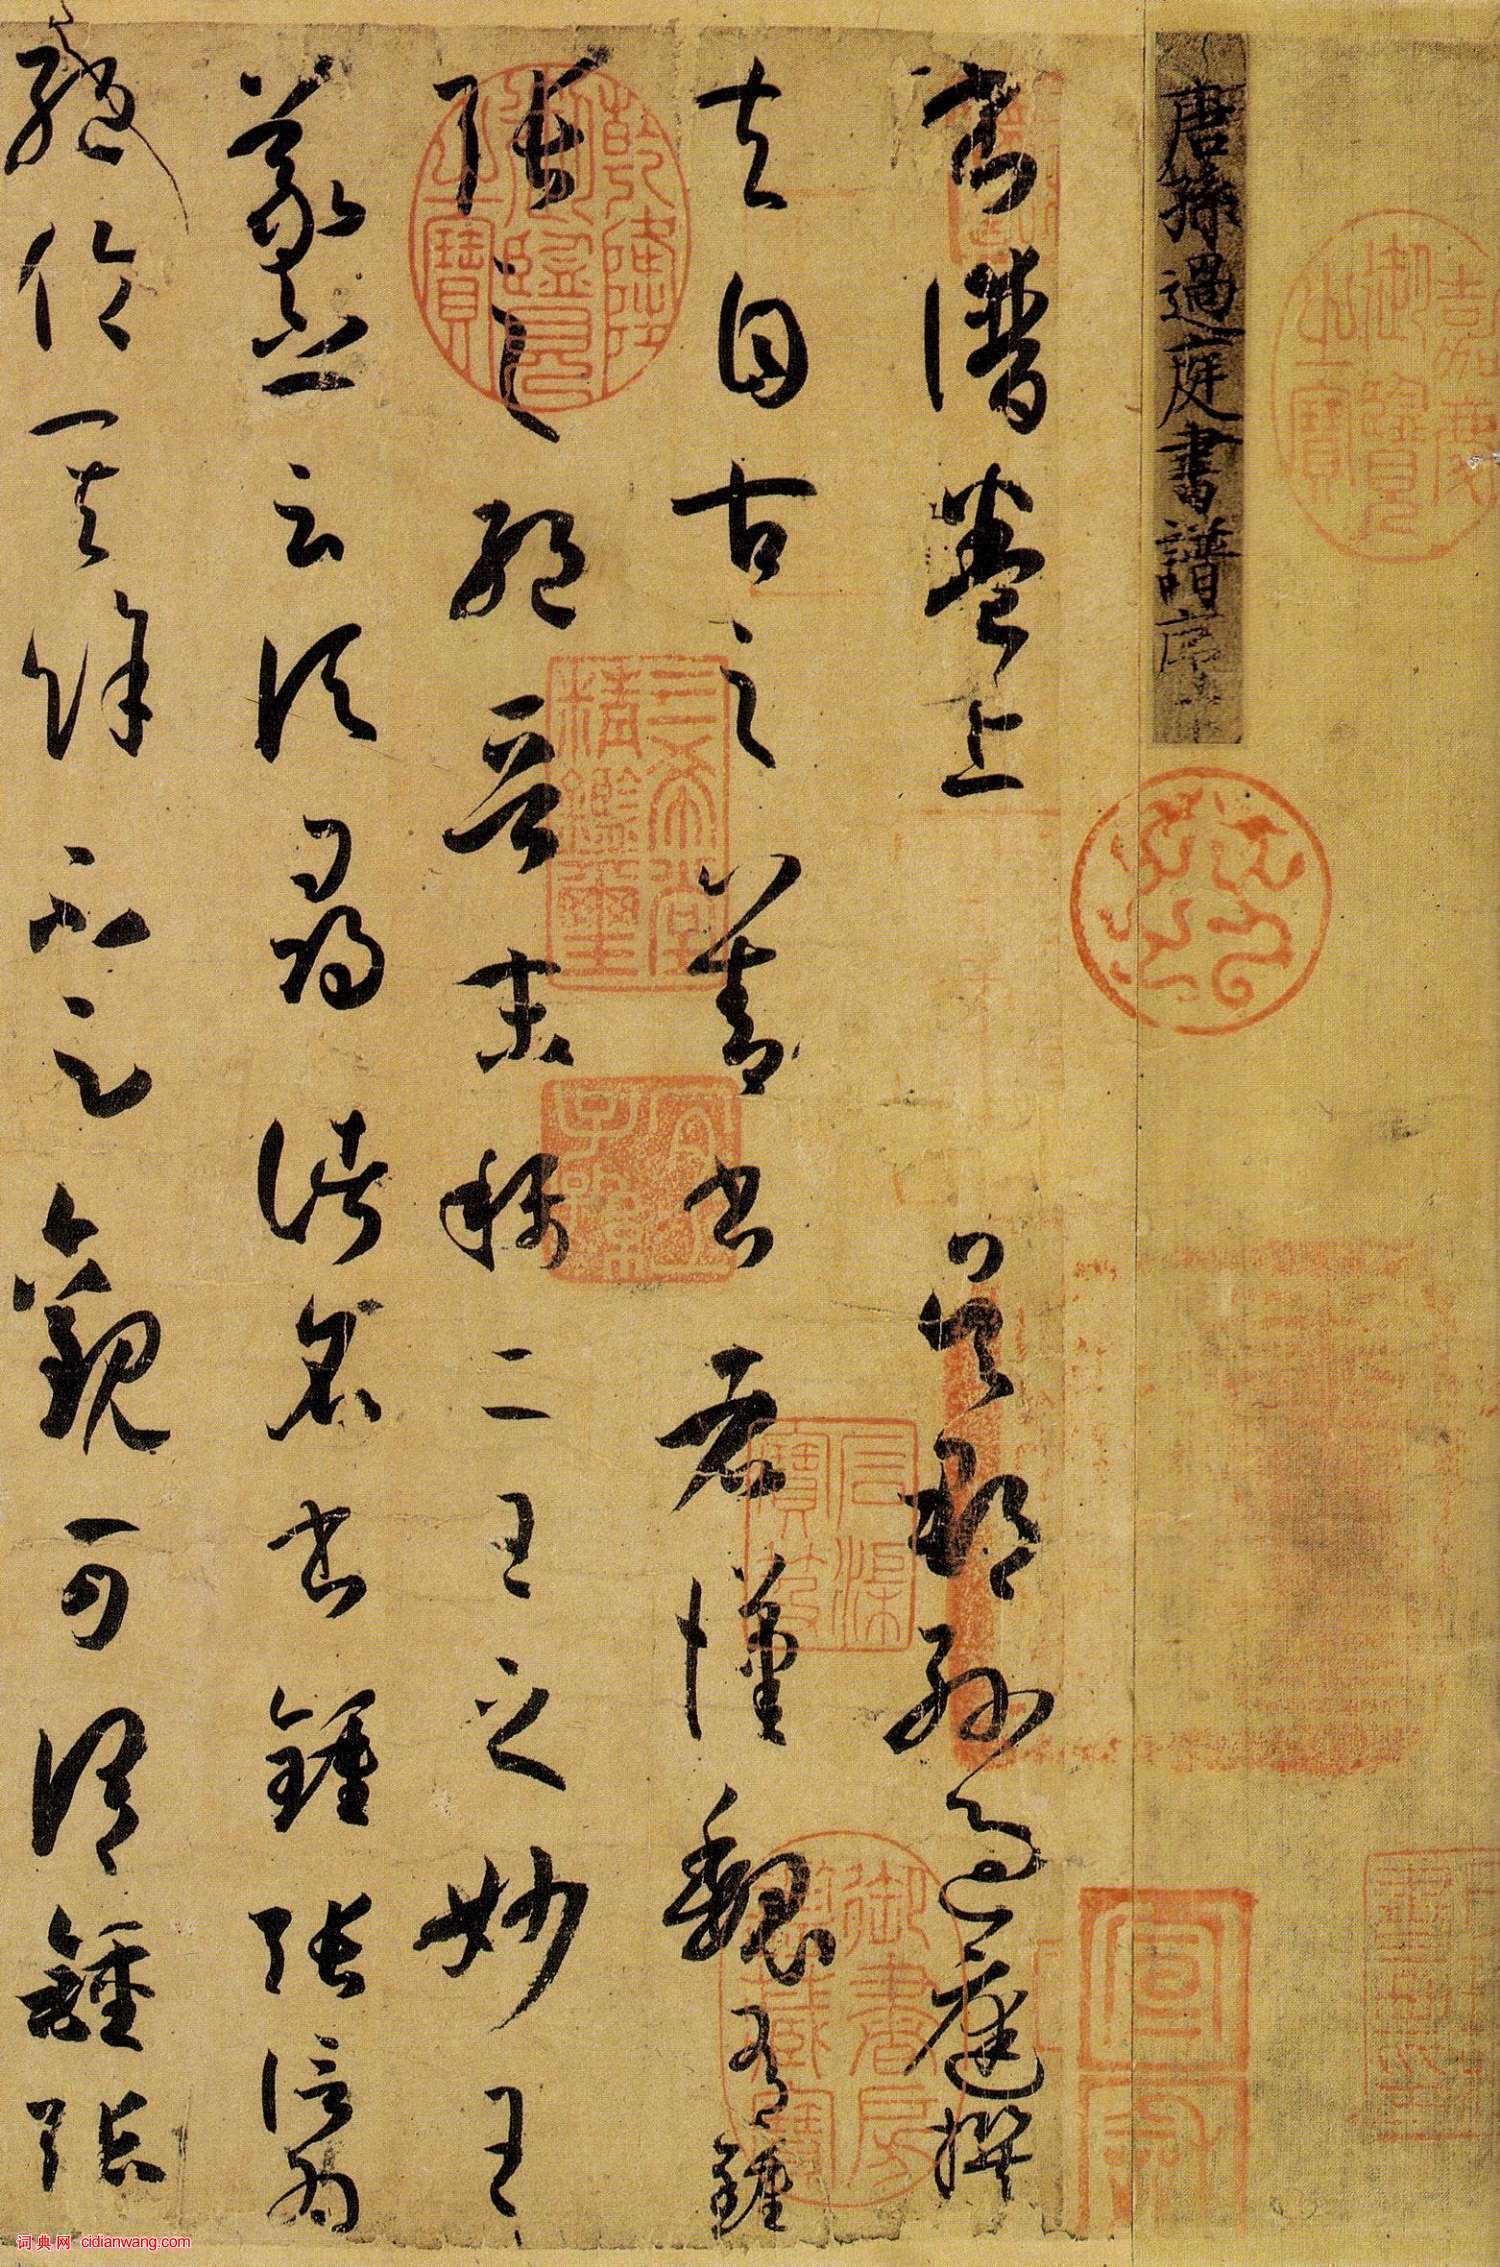 嘉慶御覽之寶
唐孫過庭書譜序
書譜卷上 吳郡孫過庭撰
夫自古之善書者漢魏有鍾
張之絕晉末稱二王之妙王
羲之云頃尋諸名書鍾張信為
絕倫其餘不足觀可謂鍾張
乾隆御覽之寶
三希堂精鑑璽
宜子孫
石渠寶笈
御書房鑑藏寶
宣龢
词典网 cidianwang.com